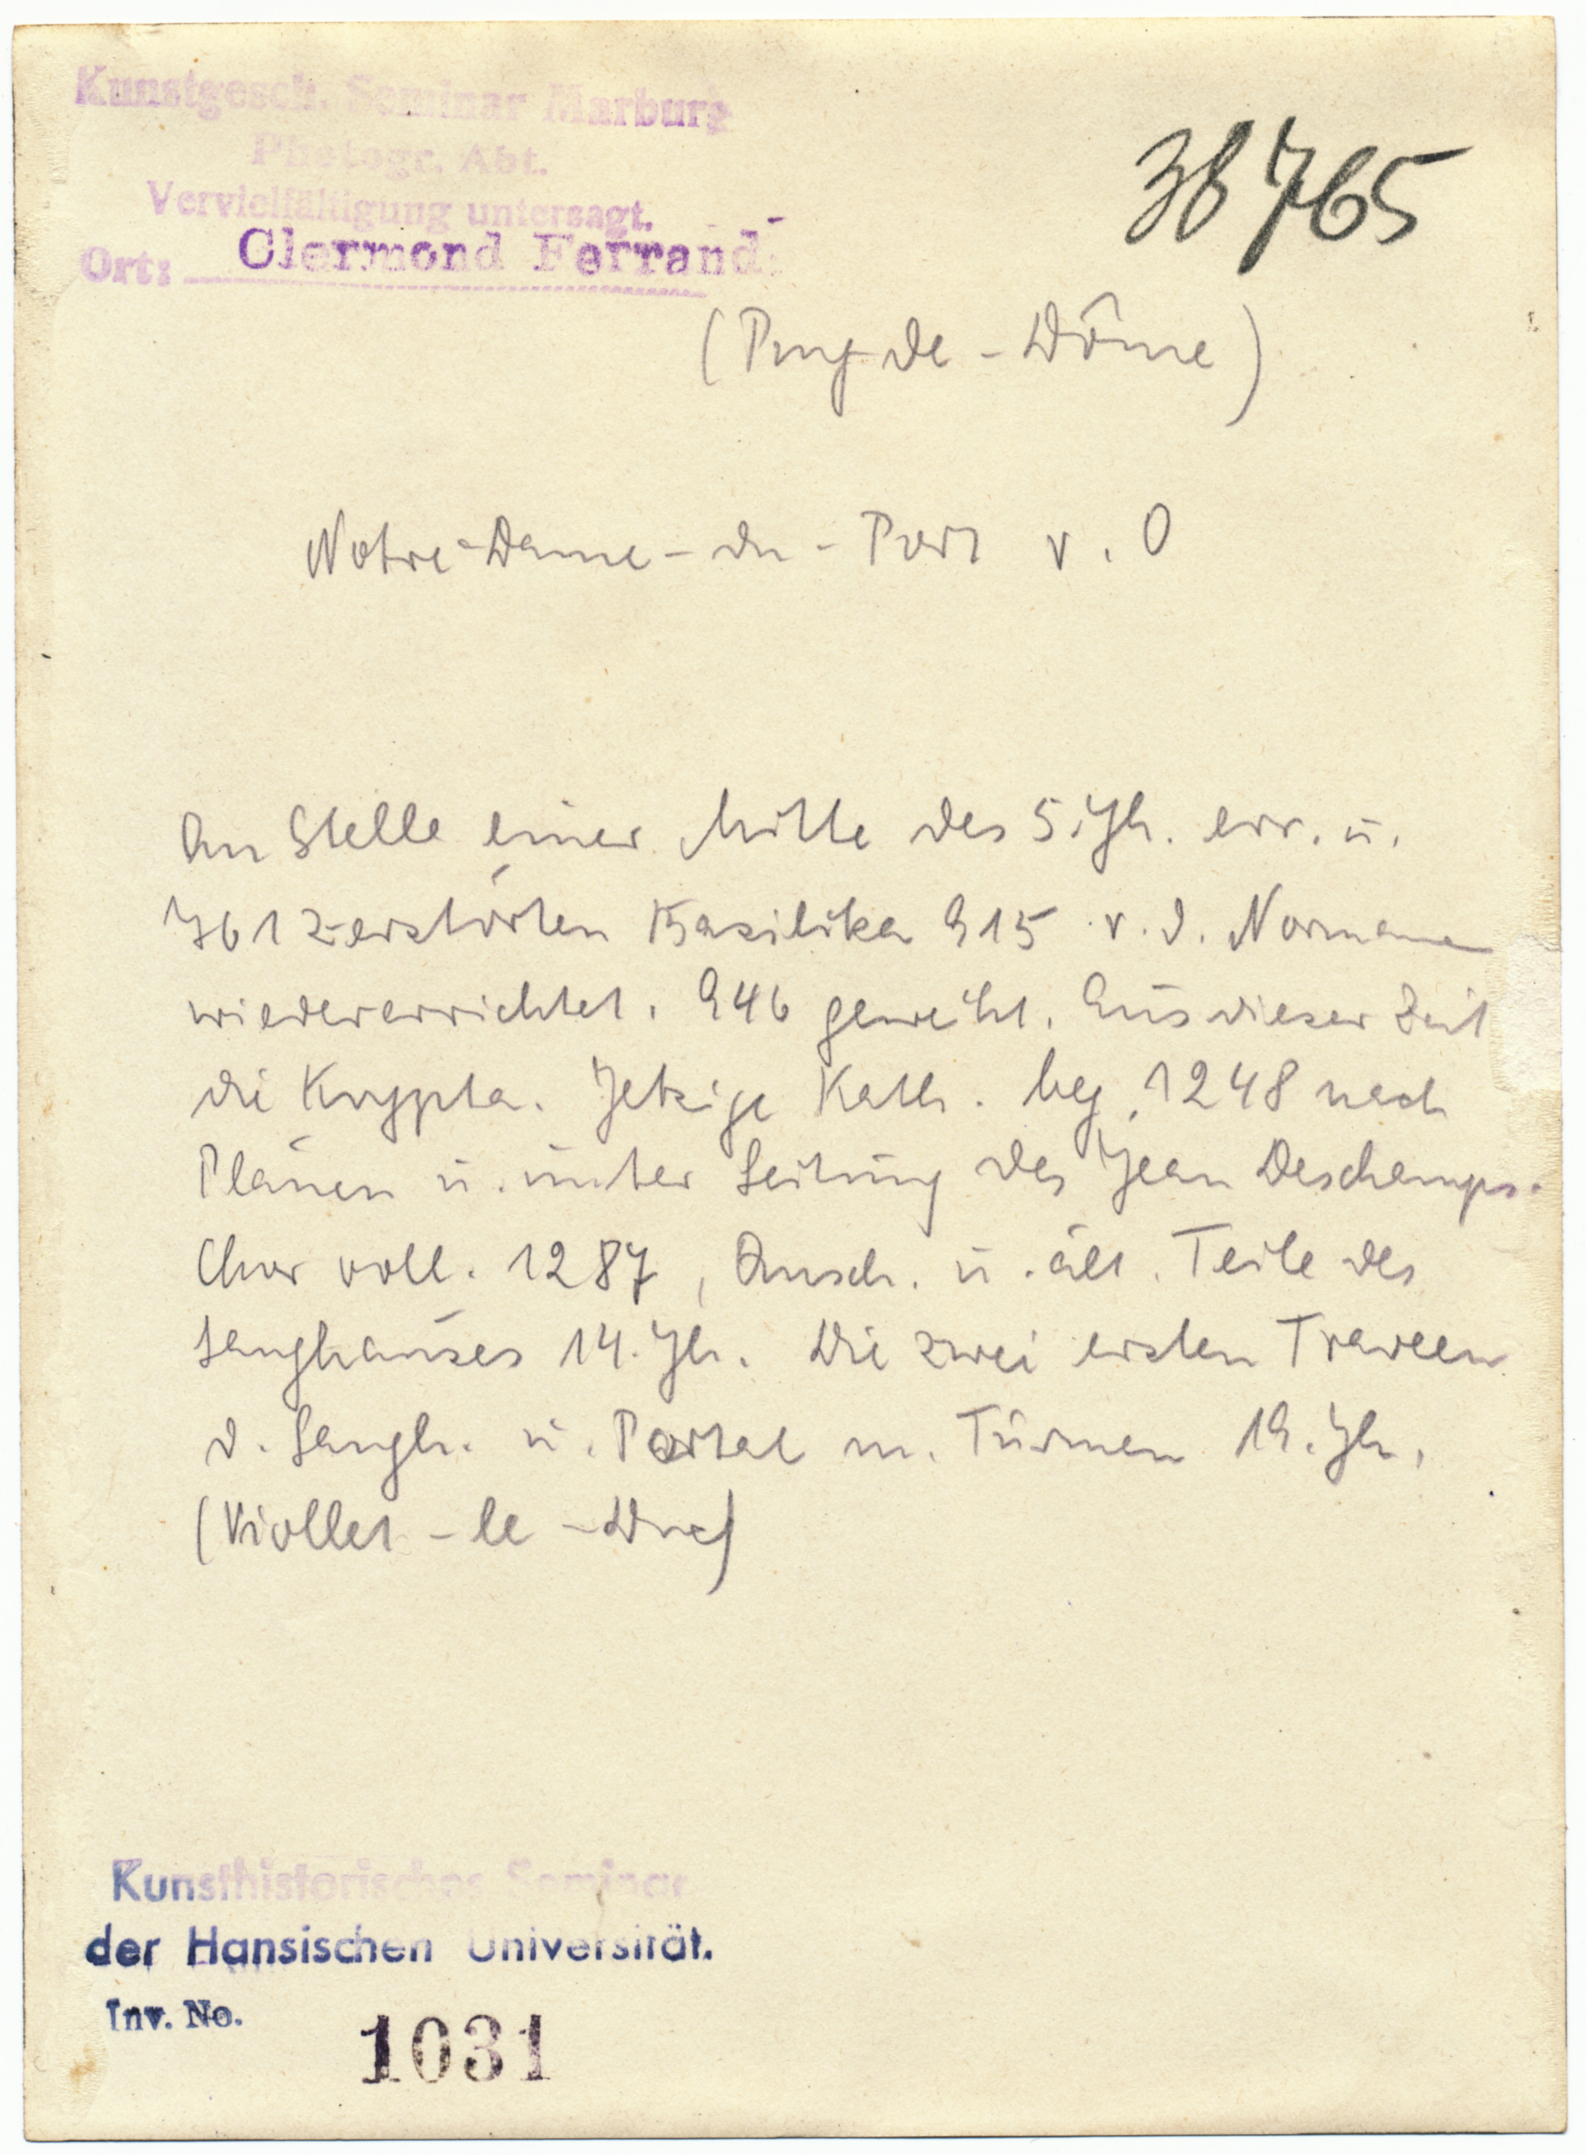 Kunstgesch. Seminar Marburg
Photogr. Abt.
Vervielfältigung untersagt.
Ort: Clermond Ferrand:
38765
(Puy de - Dôme)
Notre-Dame-du-Port v. O
An Stelle einer Mitte des 5. Jh. err. u.
761 zerstörten Basilika 915 v. d. Normanen
wiedererrichtet. 946 geweiht. Aus dieser Zeit
die Krypta. Jetzige Kath. beg. 1248 nach
Plänen u. unter Leitung des Jean Deschamps.
Chor voll. 1287, Qusch. u. ält. Teile des
Langhauses 14. Jh. Die zwei ersten Traveen
d. Langh. u. Portal m. Türmen 19. Jh.
(Viollet-le-Duc)
Kunsthistorisches Seminar
der Hansischen Universität.
Inv. No. 1031